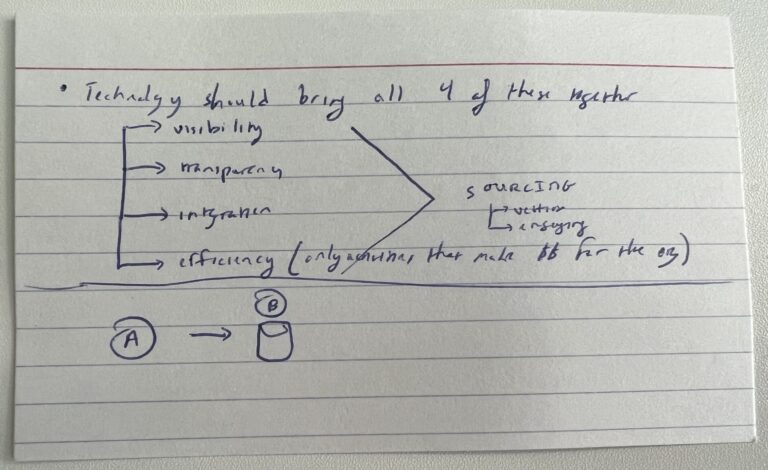 • Technology should bring all 4 of these together
visibility
transparency
integration
efficiency (only activities that make $$ for the org)
SOURCING
engaging
B
A